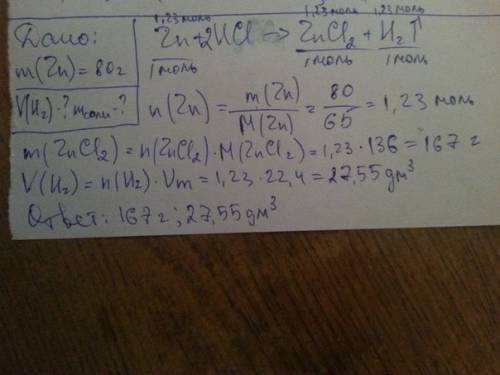 Дано:
m(Zn) = 80г
V(H₂)-? mсоли-?
1,23 моль 1,23 моль 1,23 моль
Zn + 2HCl → ZnCl₂ + H₂↑
1 моль 1 моль 1 моль
n(Zn) = m(Zn)/M(Zn) = 80/65 = 1,23 моль
m(ZnCl₂) = n(ZnCl₂)·M(ZnCl₂) = 1,23·136 = 167 г
V(H₂) = n(H₂)·Vm = 1,23·22,4 = 27,55 дм³
Ответ: 167 г; 27,55 дм³